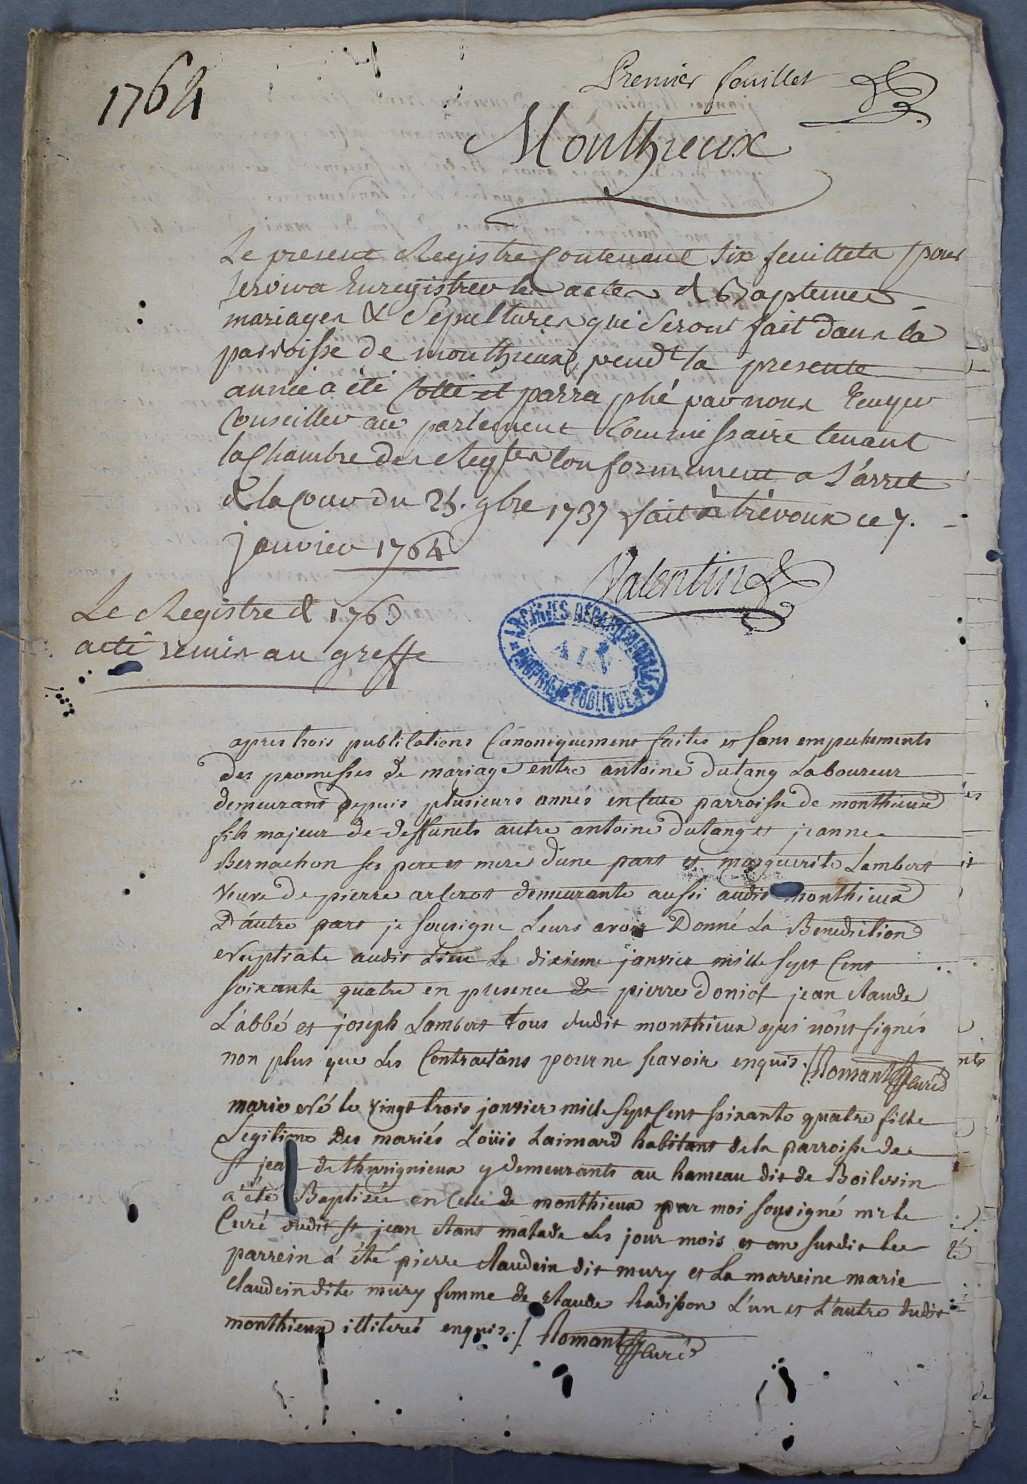 1764
Premier feuillet
Monthieux
Le present Registre Contenant Six feuillets pour
servir a Enregistrer les actes de Baptemes
mariages & Sepultures qui Seront fait dans la
parroisse de monthieux, pendt la presente
année a été Cotté et parraphé par nous Ecuyer
Conseiller au parlement Commissaire tenant
la Chambre des Regtes Conformement a L'arret
de la Cour du 25. 9bre 1737 fait à trévoux ce 7.
janvier 1764
Valentin
Le Registre de 1763
a eté remis au greffe
ARCHIVES DÉPARTEMENTALES
AIN
PROPRIÉTÉ PUBLIQUE
apres trois publications Canoniquement faites et sans empechements
des promesses de mariage entre antoine dutang Laboureur
demeurant depuis plusieurs annés en cette parroisse de monthieux
fils majeur de deffunts autre antoine dutang et jeanne
Bernachon ses pere et mere d'une part et marguerite Lambert
veuve de pierre arleros demeurante aussi audit monthieux
D'autre part je sousigne Leurs avoir Donné La Benediction
Nuptiale audit Lieu Le dixieme janvier mille sept Cent
soixante quatre en presence de pierre doniol jean claude
L'abbé et joseph Lambert tous dudit monthieux qui n'ont signés
non plus que Les Contractans pour ne scavoir enquis. Romant Curé
marie née le vingt trois janvier mille sept Cent soixante quatre fille
Legitime Des mariés Loüis Laimard habitant de la parroisse de
st jean de thurignieux y demeurants au hameau dit de Boilevin
a été Baptizée en Celle de monthieux par moi sousigné mr le
Curé dudit st jean etant malade Les jour mois et an susdit Le
parrein a été pierre claudein dit mury et La marreine marie
claudein dite mury femme de claude Radisson L'un et L'autre dudit
monthieux illiterés enquis. / Romant Curé